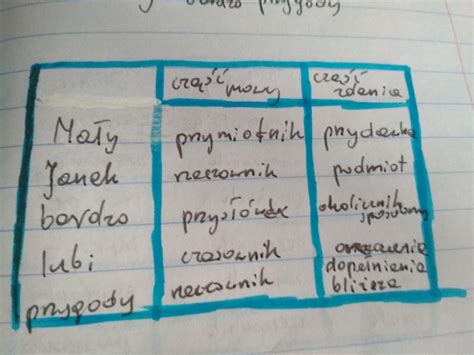 bardzo przygody
część mowy część zdania
Mały przymiotnik przydawka
Janek rzeczownik podmiot
bardzo przysłówek okolicznik sposobu
lubi czasownik orzeczenie
przygody rzeczownik dopełnienie bliższe